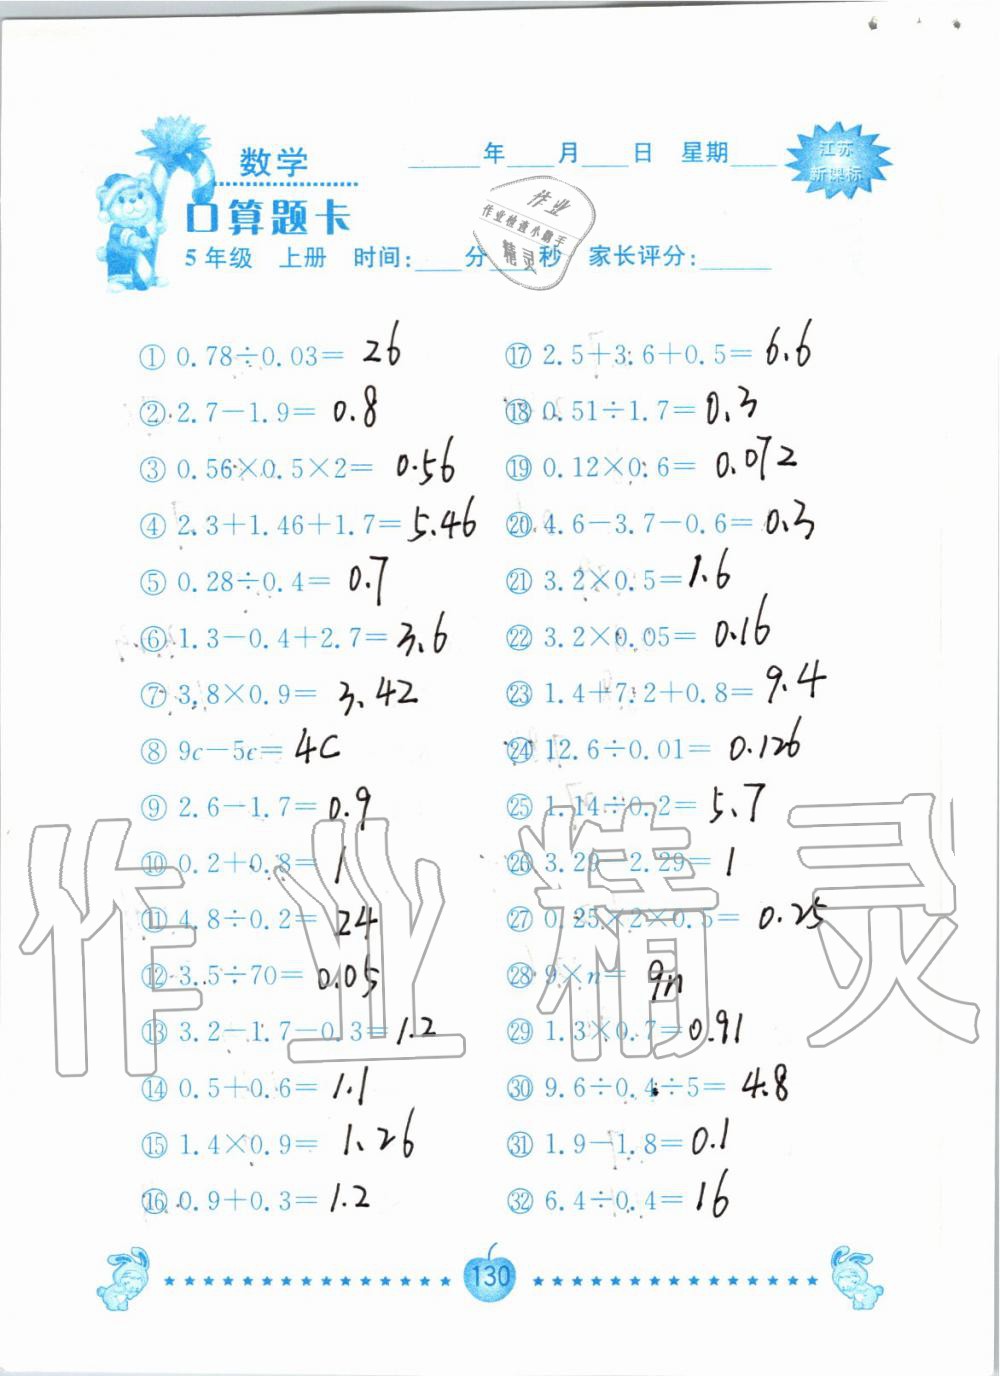 数学
____年____月____日 星期____
江苏
新课标
口算题卡
作业
作业检查小助手
精灵
5年级 上册 时间:____分____秒 家长评分:____
① 0.78÷0.03= 26
② 2.7-1.9= 0.8
③ 0.56×0.5×2= 0.56
④ 2.3+1.46+1.7= 5.46
⑤ 0.28÷0.4= 0.7
⑥ 1.3-0.4+2.7= 3.6
⑦ 3.8×0.9= 3.42
⑧ 9c-5c= 4c
⑨ 2.6-1.7= 0.9
⑩ 0.2+0.8= 1
⑪ 4.8÷0.2= 24
⑫ 3.5÷70= 0.05
⑬ 3.2-1.7-0.3= 1.2
⑭ 0.5+0.6= 1.1
⑮ 1.4×0.9= 1.26
⑯ 0.9+0.3= 1.2
⑰ 2.5+3.6+0.5= 6.6
⑱ 0.51÷1.7= 0.3
⑲ 0.12×0.6= 0.072
⑳ 4.6-3.7-0.6= 0.3
㉑ 3.2×0.5= 1.6
㉒ 3.2×0.05= 0.16
㉓ 1.4+7.2+0.8= 9.4
㉔ 12.6÷0.01= 0.126
㉕ 1.14÷0.2= 5.7
㉖ 3.29-2.29= 1
㉗ 0.25×2×0.5= 0.25
㉘ 9×n= 9n
㉙ 1.3×0.7= 0.91
㉚ 9.6÷0.4÷5= 4.8
㉛ 1.9-1.8= 0.1
㉜ 6.4÷0.4= 16
作业精灵
130